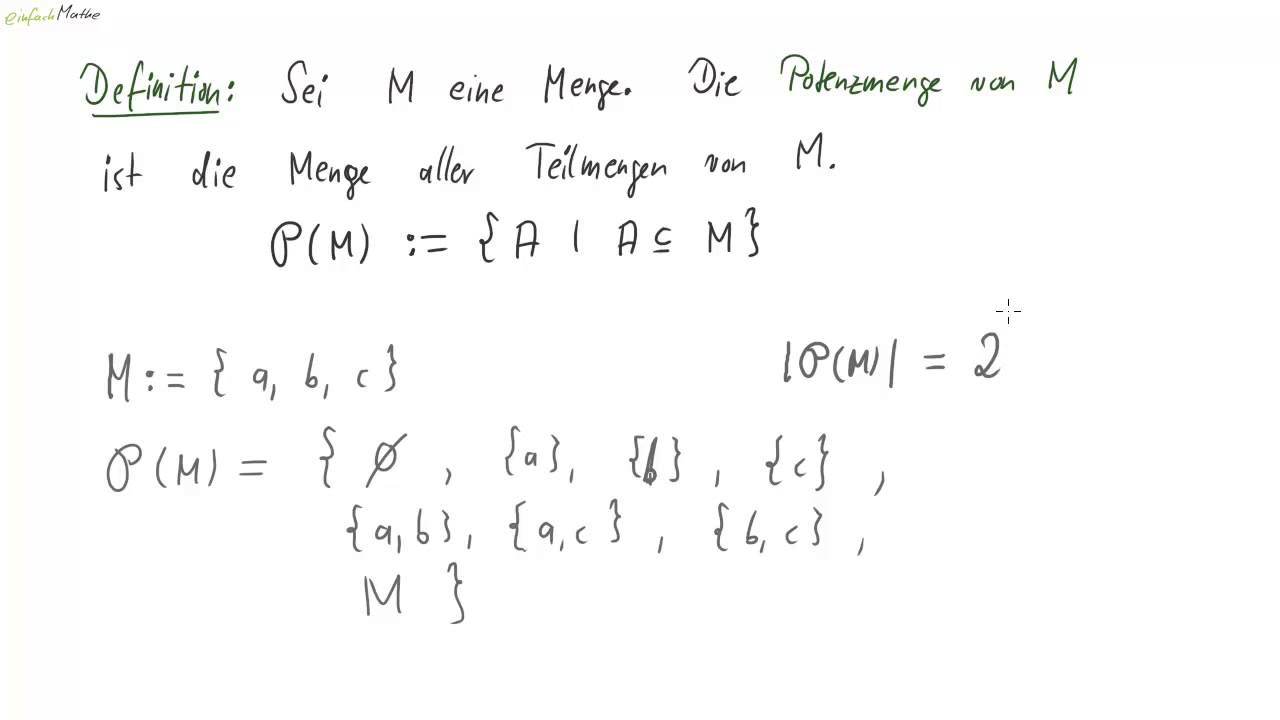 einfachMathe
Definition: Sei M eine Menge. Die Potenzmenge von M
ist die Menge aller Teilmengen von M.
P(M) := {A | A ⊆ M}
M := { a, b, c }
|P(M)| = 2
P(M) = { ∅ , {a}, {b} , {c} ,
{a, b}, {a, c} , {b, c} ,
M }